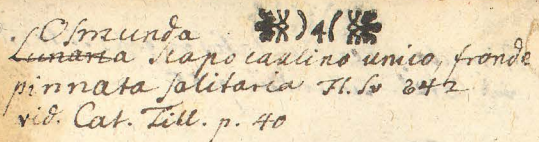 Osmunda )4(
Lunaria scapo caulino unico, fronde
pinnata solitaria Fl. Sv 842
vid. Cat. Till. p. 40